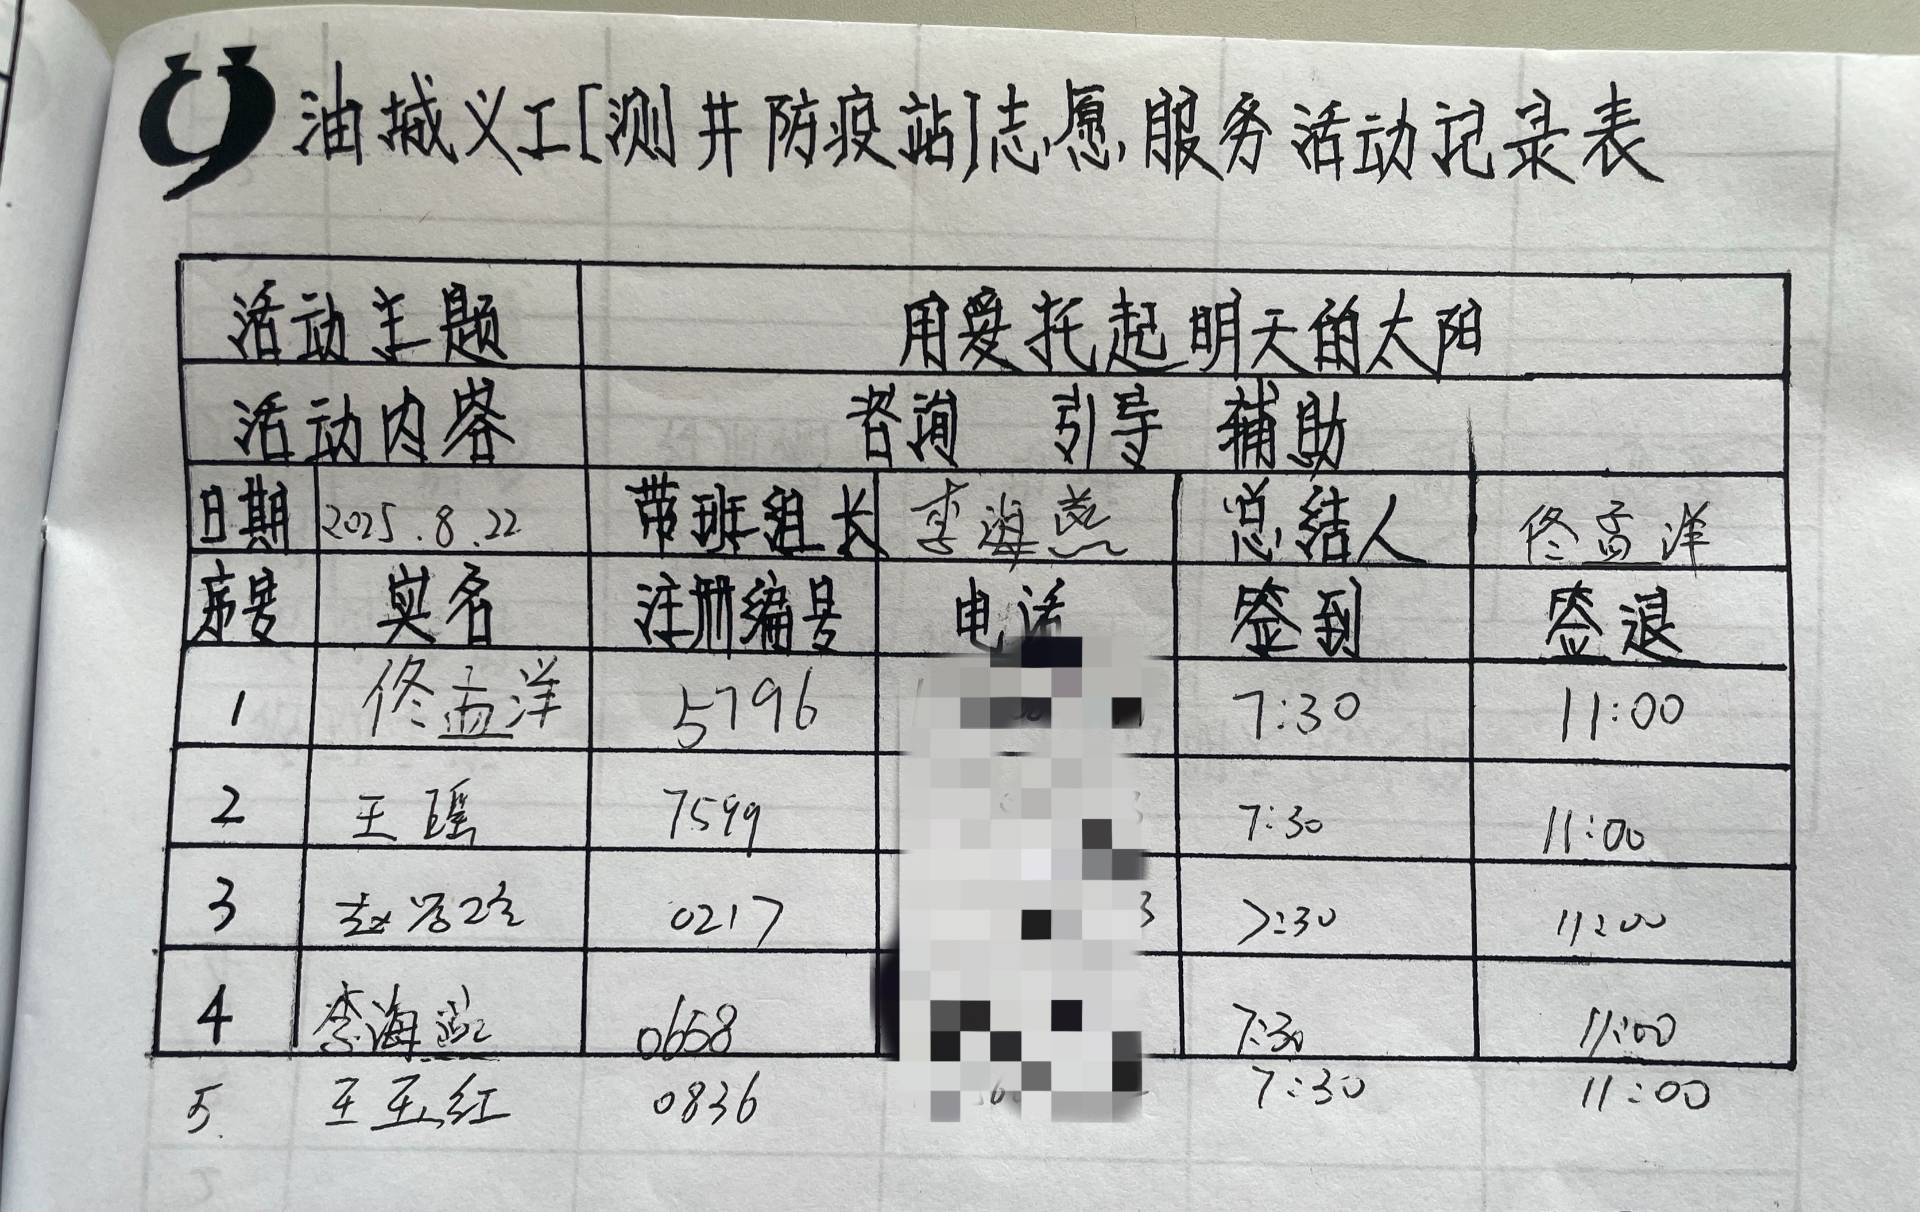 油城义工[测井防疫站]志愿服务活动记录表
活动主题 用爱托起明天的太阳
活动内容 咨询 引导 辅助
日期 2025.8.22 带班组长 李海燕 总结人 佟孟洋
序号 实名 注册编号 电话 签到 签退
1 佟孟洋 5796 7:30 11:00
2 王瑶 7599 7:30 11:00
3 赵 0217 3 7:30 11:00
4 李海燕 0658 7:30 11:00
5. 王玉红 0836 7:30 11:00